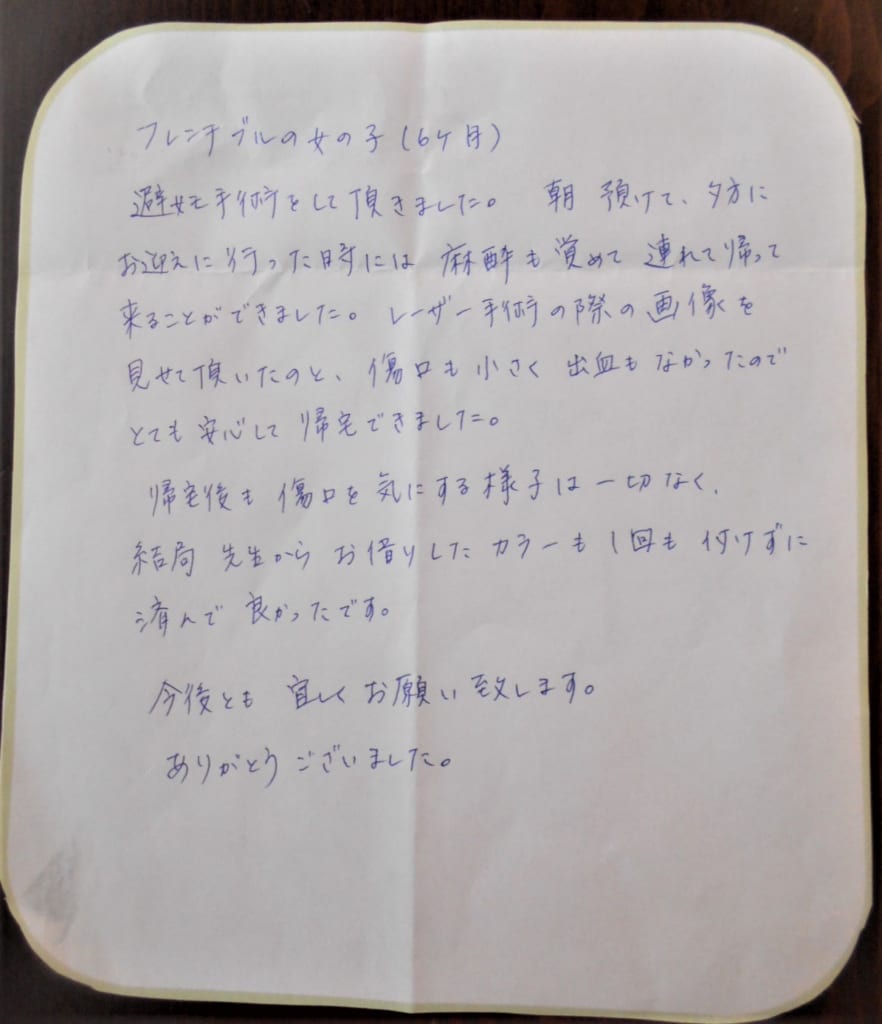 フレンチブルの女の子(6ケ月)
避妊手術をして頂きました。 朝 預けて、夕方に
お迎えに行った時には 麻酔も覚めて 連れて帰って
来ることができました。 レーザー手術の際の画像を
見せて頂いたのと、傷口も小さく 出血もなかったので
とても 安心して 帰宅できました。
帰宅後も 傷口を 気にする様子は 一切なく、
結局 先生から お借りした カラーも 1回も 付けずに
済んで 良かったです。
今後とも 宜しく お願い致します。
ありがとう ございました。